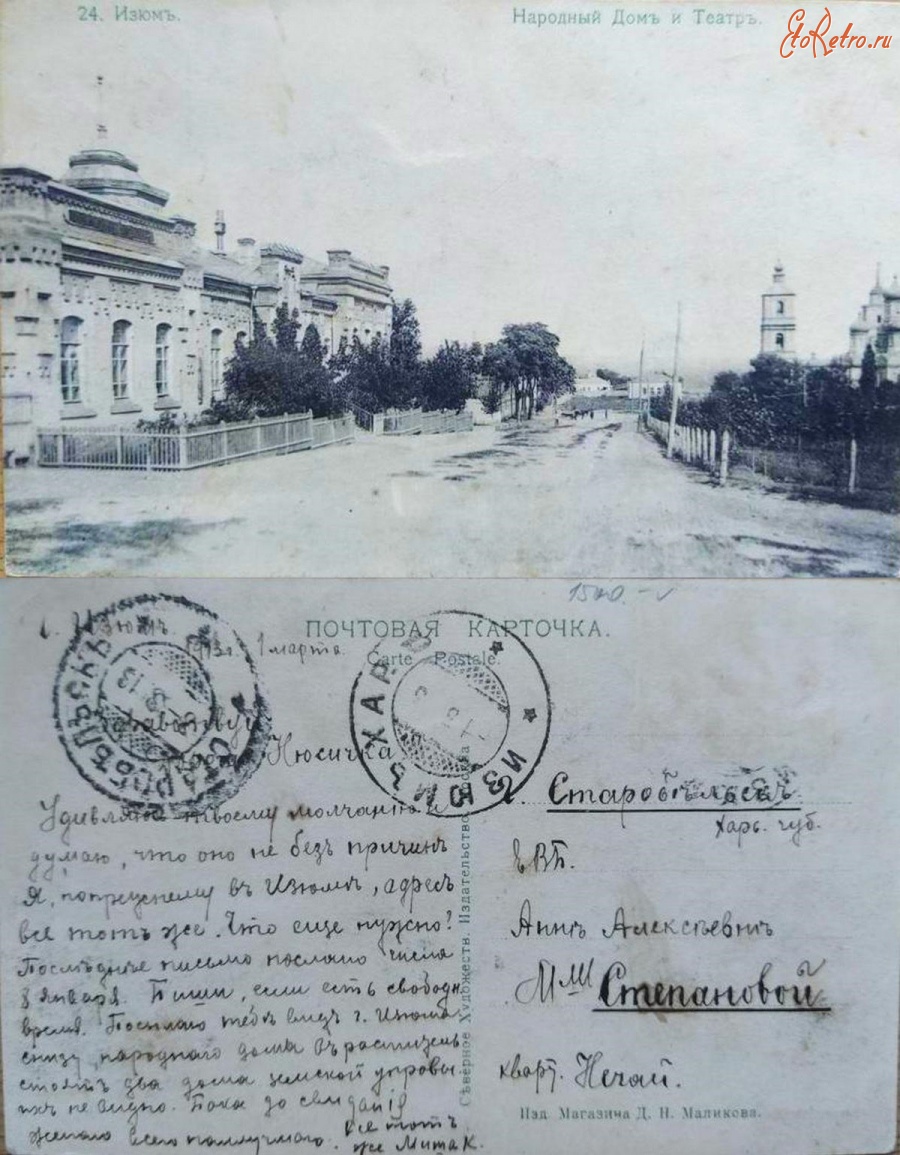 24. Изюмъ.
Народный Домъ и Театръ.
EtoRetro.ru
1500.-
ПОЧТОВАЯ КАРТОЧКА.
Carte Postale.
г. Изюмъ
1913 г. 1 марта.
СТАРОБѢЛЬСКЪ
ИЗЮМЪ ХАР
Нюсичка
Удивляюсь твоему молчанію и
думаю, что оно не безъ причинъ
Я, попрежнему въ Изюмѣ, адресъ
все тотъ же. Что еще нужно?
Послѣднее письмо послано числа
8 января. Пиши, если есть свободн
время. Посылаю тебѣ видъ г. Изюма
снизу народнаго дома
стоятъ два дома земской управы.
ихъ не видно. Пока до свиданія
желаю всего наилучшаго. все тотъ
же Митя К.
Сѣверное Художеств. Издательство
г. Старобѣльскъ
Харь. губ.
ЕВБ.
Аннѣ Алексѣевнѣ
М-ли Степановой
кварт. Нечай.
Изд. Магазина Д. Н. Маликова.